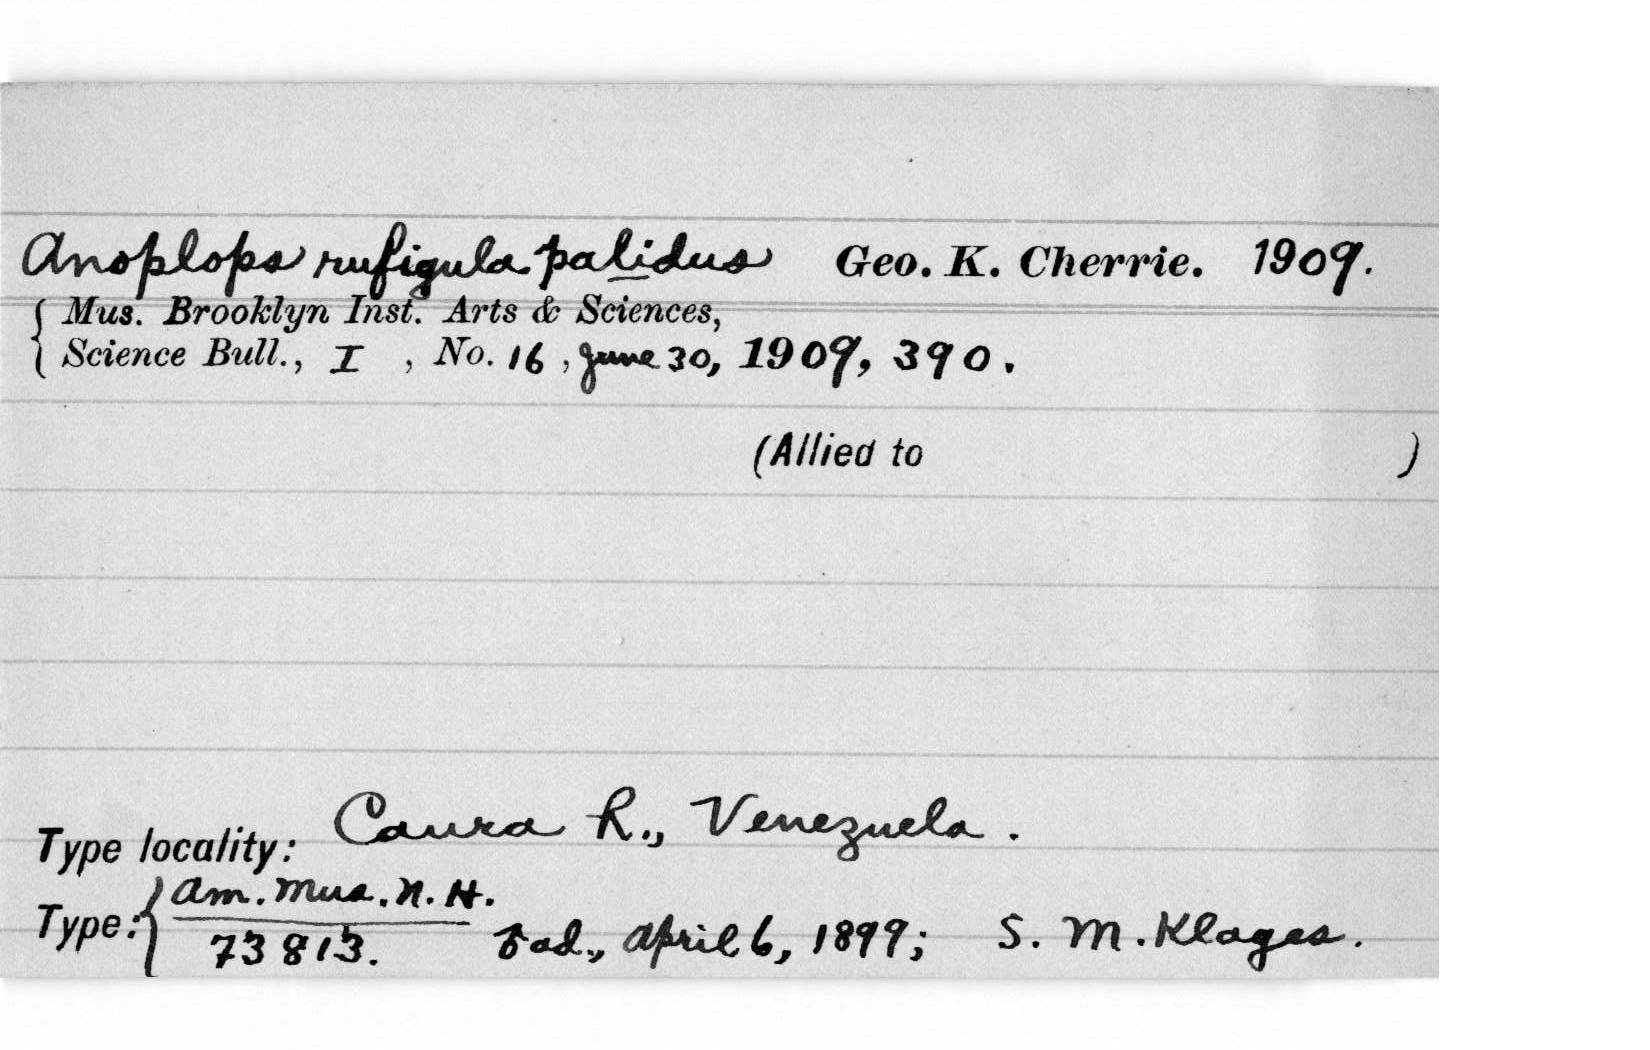 Anoplops rufigula palidus Geo. K. Cherrie. 1909.
Mus. Brooklyn Inst. Arts & Sciences,
Science Bull., I , No. 16 , June 30, 1909, 390.
(Allied to )
Type locality: Caura R., Venezuela .
Type: Am. Mus. N. H.
73813. ♂ ad., April 6, 1899; S. M. Klages.